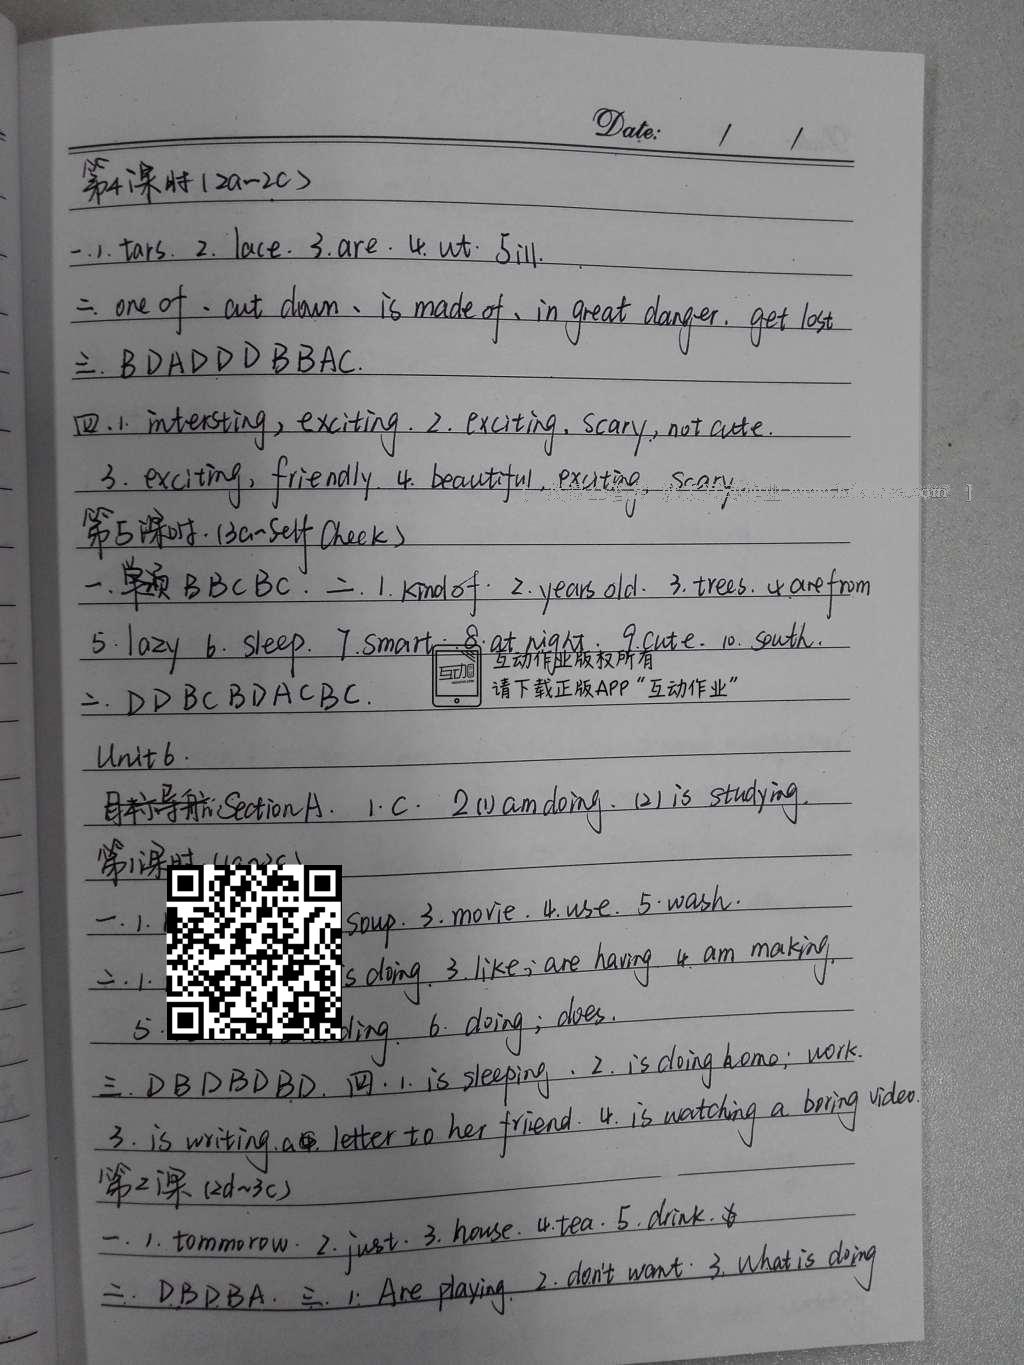 Date: / /
第4课时(2a~2c)
一.1. tars. 2. lace. 3. are. 4. ut. 5 ill.
二. one of、cut down、is made of、in great danger. get lost
三. BDADDDBBAC.
四.1. intersting, exciting. 2. exciting, scary, not cute.
3. exciting, friendly 4. beautiful, exciting, scary
第5课时.(3a~Self Check)
一.单项 BBCBC. 二. 1. kind of. 2. years old. 3. trees. 4. are from
5. lazy 6. sleep. 7. smart. 8. at night. 9. cute. 10. south.
互动 互动作业版权所有
请下载正版APP“互动作业”
二. DDBCBDACBC.
Unit 6.
目标导航: Section A. 1. C. 2 (1) am doing. (2) is studying.
第1课时
一.1. soup. 3. movie. 4. use. 5. wash.
二.1. is doing. 3. like; are having 4. am making.
5. 6. doing; does.
三. DBDBDBD. 四.1. is sleeping. 2. is doing home; work.
3. is writing a letter to her friend. 4. is watching a boring video.
第2课 (2d~3c)
一. 1. tommorow. 2. just. 3. house. 4. tea. 5. drink.
二. DBDBA. 三. 1. Are playing. 2. don't want. 3. What is doing